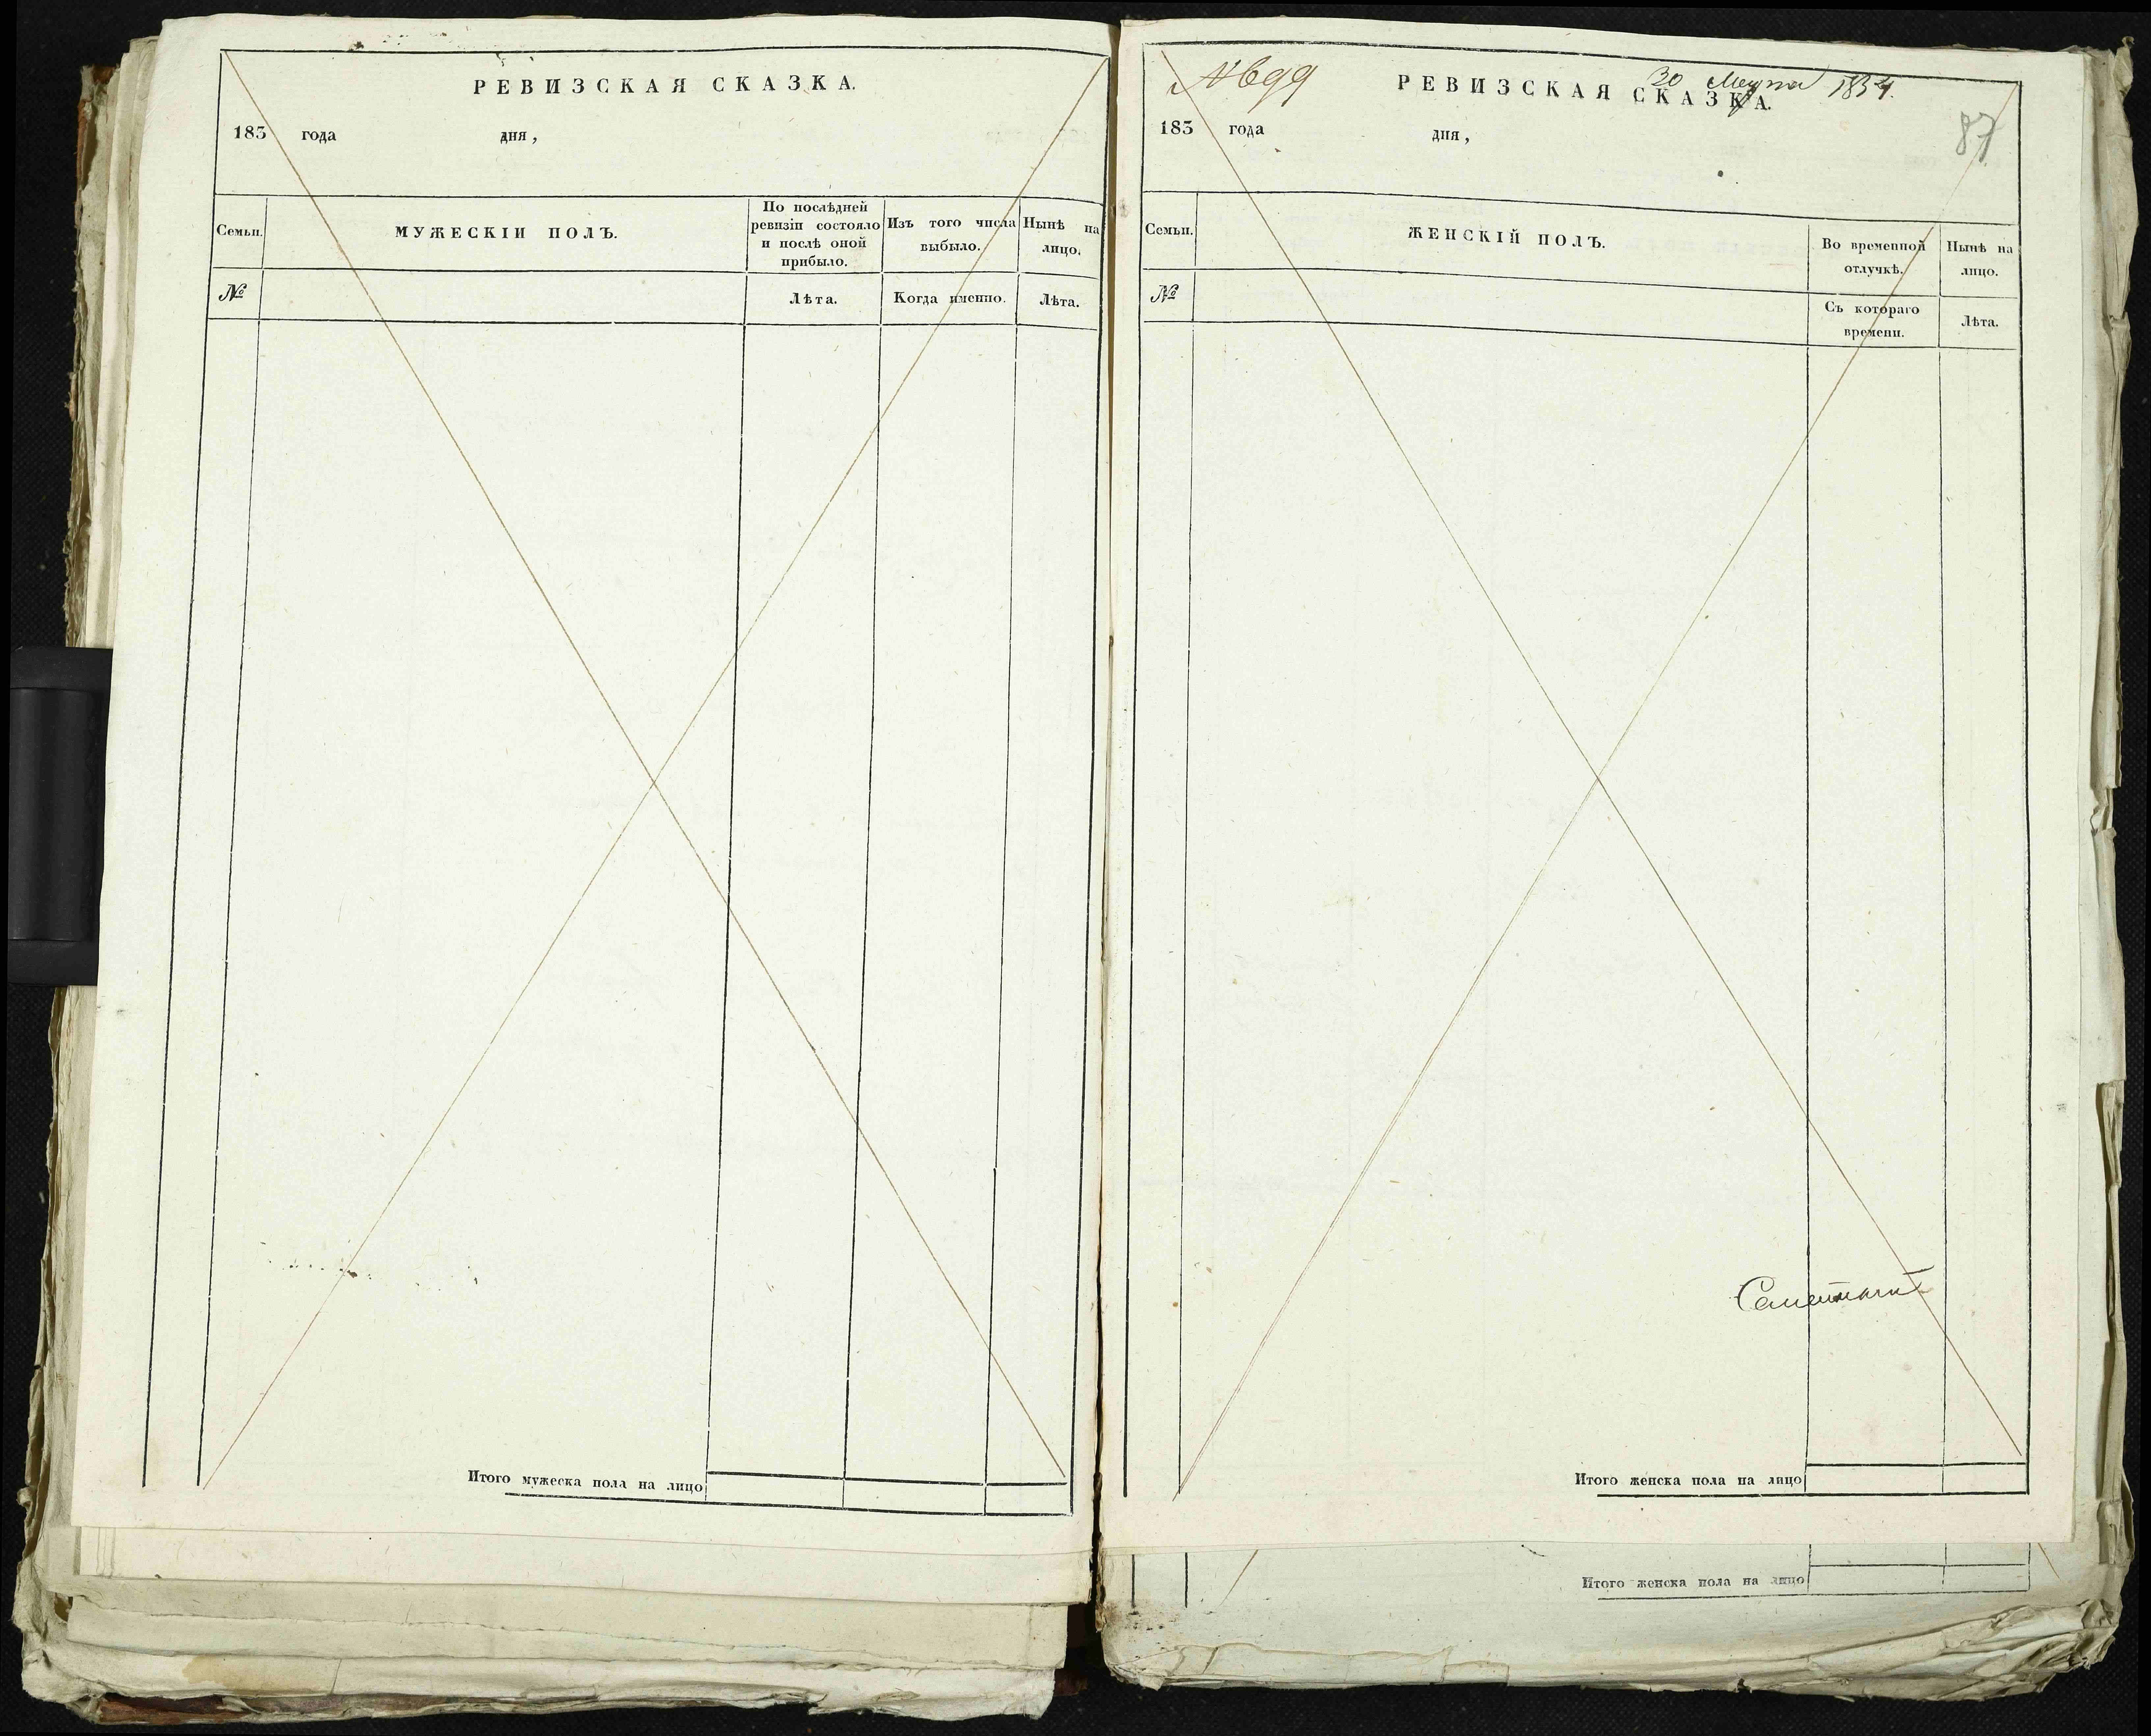 РЕВИЗСКАЯ СКАЗКА.
183 года дня,
Семьи.
МУЖЕСКІИ ПОЛЪ.
По послѣдней
ревизіи состояло
и послѣ оной
прибыло.
Изъ того числа
выбыло.
Нынѣ на
лицо.
№
Лѣта.
Когда именно.
Лѣта.
Итого мужеска пола на лицо
№ 699
30 Марта 1834.
РЕВИЗСКАЯ СКАЗКА.
87
183 года дня,
Семьи.
ЖЕНСКІЙ ПОЛЪ.
Во временной
отлучкѣ.
Нынѣ на
лицо.
№
Съ котораго
времени.
Лѣта.
Итого женска пола на лицо
Итого женска пола на лицо